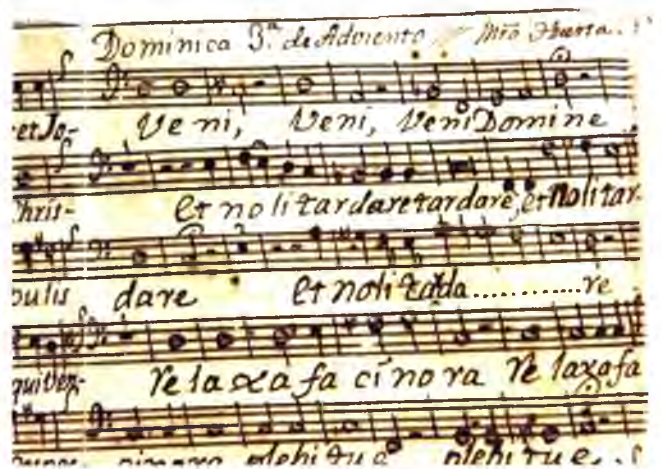 Dominica 3.ª de Adviento Mro Huerta.
et Jo- Veni, Veni, Veni Domine
Chris- et noli tardare tardare, et noli tar-
pulis dare et noli tarda............re
qui ven- Relaxa facinora Relaxa fa
plebi tue plebi tue